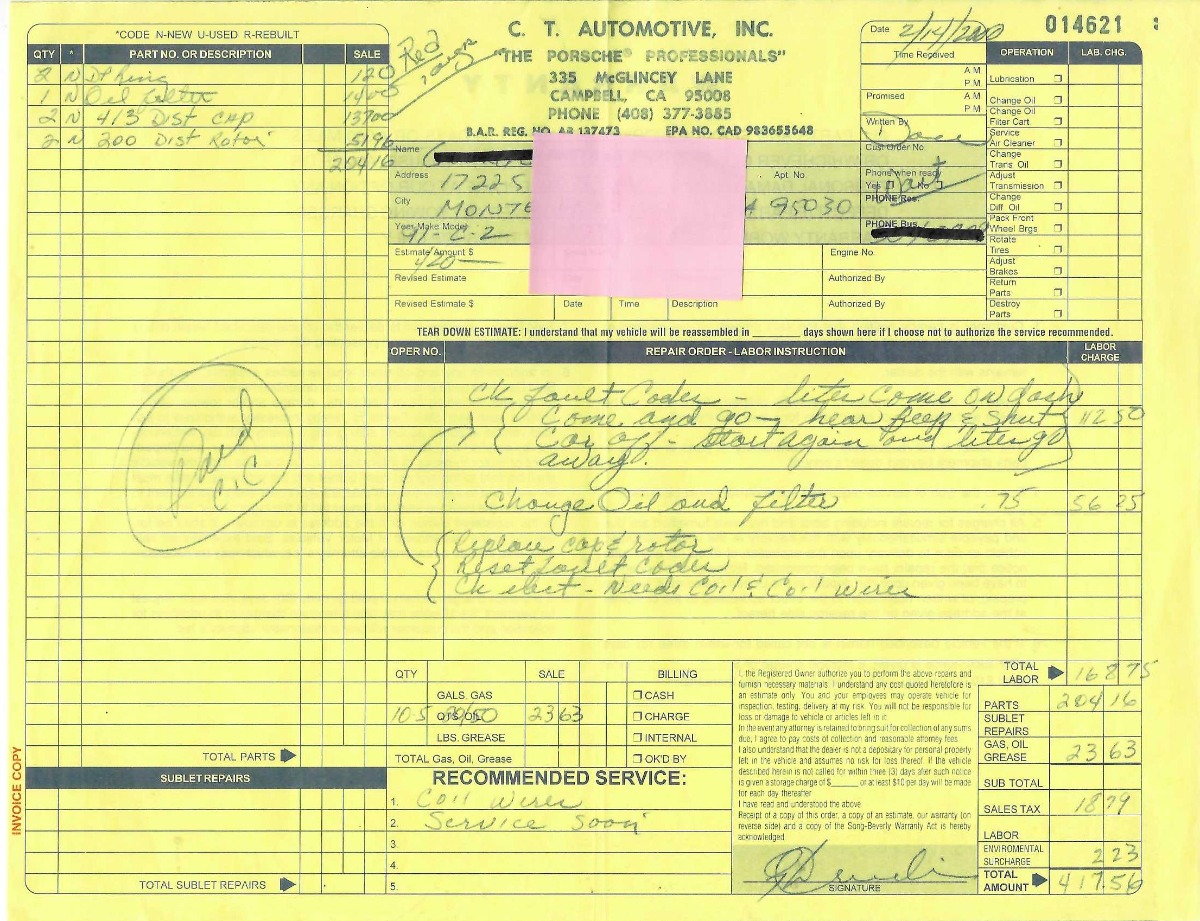 *CODE N-NEW U-USED R-REBUILT
QTY * PART NO. OR DESCRIPTION SALE
2 N Ring 120
1 N Oil filter 1400
2 N 413 Dist CAP 13700
2 N 200 Dist Rotor 5196
20416
Red
C. T. AUTOMOTIVE, INC.
"THE PORSCHE® PROFESSIONALS"
335 McGLINCEY LANE
CAMPBELL, CA 95008
PHONE (408) 377-3885
B.A.R. REG. NO. AB 137473 EPA NO. CAD 983655648
Name
Address 17225 Apt. No.
City MONTE A 95030
Year Make Model 91- C-2
Estimate Amount $ 420— Engine No.
Revised Estimate Authorized By
Revised Estimate $ Date Time Description Authorized By
Date 2/14/2000
014621
Time Received
A M
P M
Promised A M
P M
Written By Dave
Cust Order No.
Phone when ready
Yes No
PHONE Res.
PHONE Bus.
OPERATION LAB. CHG.
Lubrication
Change Oil
Change Oil
Filter Cart.
Service
Air Cleaner
Change
Trans. Oil
Adjust
Transmission
Change
Diff. Oil
Pack Front
Wheel Brgs
Rotate
Tires
Adjust
Brakes
Return
Parts
Destroy
Parts
TEAR DOWN ESTIMATE: I understand that my vehicle will be reassembled in ______ days shown here if I choose not to authorize the service recommended.
OPER NO. REPAIR ORDER - LABOR INSTRUCTION LABOR CHARGE
CK fault Codes - lites come on dash
Come and go - hear Beep & shut 112 50
Car off - start again and lites go
away.
Change Oil and filter .75 56 25
Replace cap & rotor
Reset fault Codes
CK elect - Needs Coil & Coil wires
Paid
C.C
QTY SALE BILLING
GALS. GAS CASH
10.5 QTS. OIL 23 63 CHARGE
LBS. GREASE INTERNAL
TOTAL Gas, Oil, Grease OK'D BY
TOTAL PARTS
SUBLET REPAIRS
TOTAL SUBLET REPAIRS
INVOICE COPY
RECOMMENDED SERVICE:
1. Coil wires
2. Service Soon
3
4.
5.
I, the Registered Owner authorize you to perform the above repairs and
furnish necessary materials. I understand any cost quoted heretofore is
an estimate only. You and your employees may operate vehicle for
inspection, testing, delivery at my risk. You will not be responsible for
loss or damage to vehicle or articles left in it.
In the event any attorney is retained to bring suit for collection of any sums
due, I agree to pay costs of collection and reasonable attorney fees.
I also understand that the dealer is not a depositary for personal property
left in the vehicle and assumes no risk for loss thereof. If the vehicle
described herein is not called for within three (3) days after such notice
is given a storage charge of $______ or at least $10 per day will be made
for each day thereafter
I have read and understood the above
Receipt of a copy of this order, a copy of an estimate, our warranty (on
reverse side) and a copy of the Song-Beverly Warranty Act is hereby
acknowledged.
SIGNATURE
TOTAL LABOR 168 75
PARTS 204 16
SUBLET REPAIRS
GAS, OIL GREASE 23 63
SUB TOTAL
SALES TAX 18 79
LABOR
ENVIROMENTAL SURCHARGE 2 23
TOTAL AMOUNT 417.56